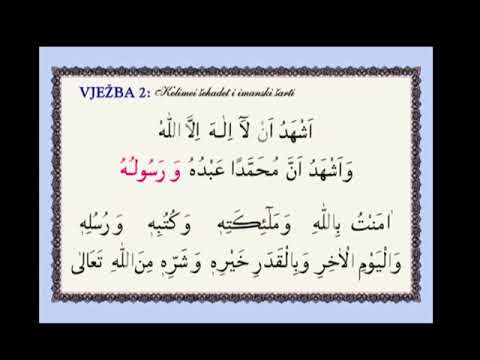 VJEŽBA 2: Kelimei šehadet i imanski šarti
اَشْهَدُ اَنْ لَآ اِلٰهَ اِلَّا اللّٰهُ
وَاَشْهَدُ اَنَّ مُحَمَّدًا عَبْدُهُ وَ رَسُولُهُ
اٰمَنْتُ بِاللّٰهِ وَمَلٰٓئِكَتِهٖ وَكُتُبِهٖ وَرُسُلِهٖ
وَالْيَوْمِ الْاٰخِرِ وَبِالْقَدَرِ خَيْرِهٖ وَشَرِّهٖ مِنَ اللّٰهِ تَعَالٰى